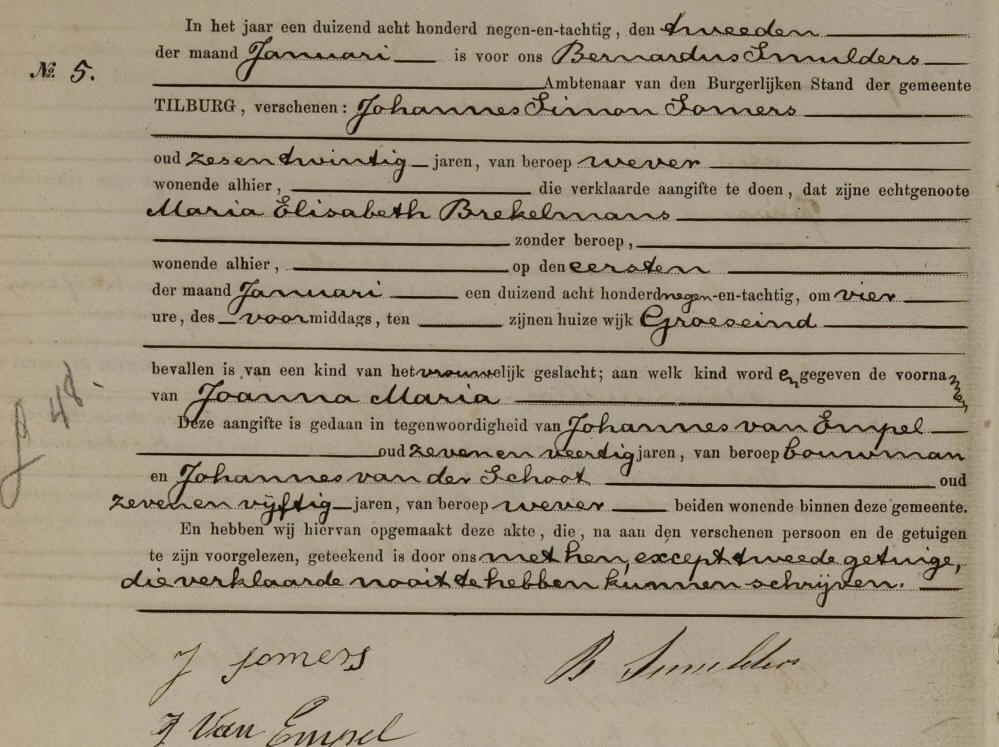 In het jaar een duizend acht honderd negen-en-tachtig, den tweeden
der maand Januari is voor ons Bernardus Smulders
№ 5.
Ambtenaar van den Burgerlijken Stand der gemeente
TILBURG, verschenen: Johannes Simon Somers
oud zesentwintig jaren, van beroep wever
wonende alhier, die verklaarde aangifte te doen, dat zijne echtgenoote
Maria Elisabeth Brekelmans
zonder beroep,
wonende alhier, op den eersten
der maand Januari een duizend acht honderd negen-en-tachtig, om vier
ure, des voormiddags, ten zijnen huize wijk Groeseind
bevallen is van een kind van het vrouwelijk geslacht; aan welk kind word en gegeven de voornamen
van Joanna Maria
Deze aangifte is gedaan in tegenwoordigheid van Johannes van Empel
oud zevenen veertig jaren, van beroep bouwman
en Johannes van der Schoot oud
zevenen vijftig jaren, van beroep wever beiden wonende binnen deze gemeente.
En hebben wij hiervan opgemaakt deze akte, die, na aan den verschenen persoon en de getuigen
te zijn voorgelezen, geteekend is door ons met hen, except tweede getuige,
die verklaarde nooit te hebben kunnen schrijven.
J Somers
B Smulders
J Van Empel
48.